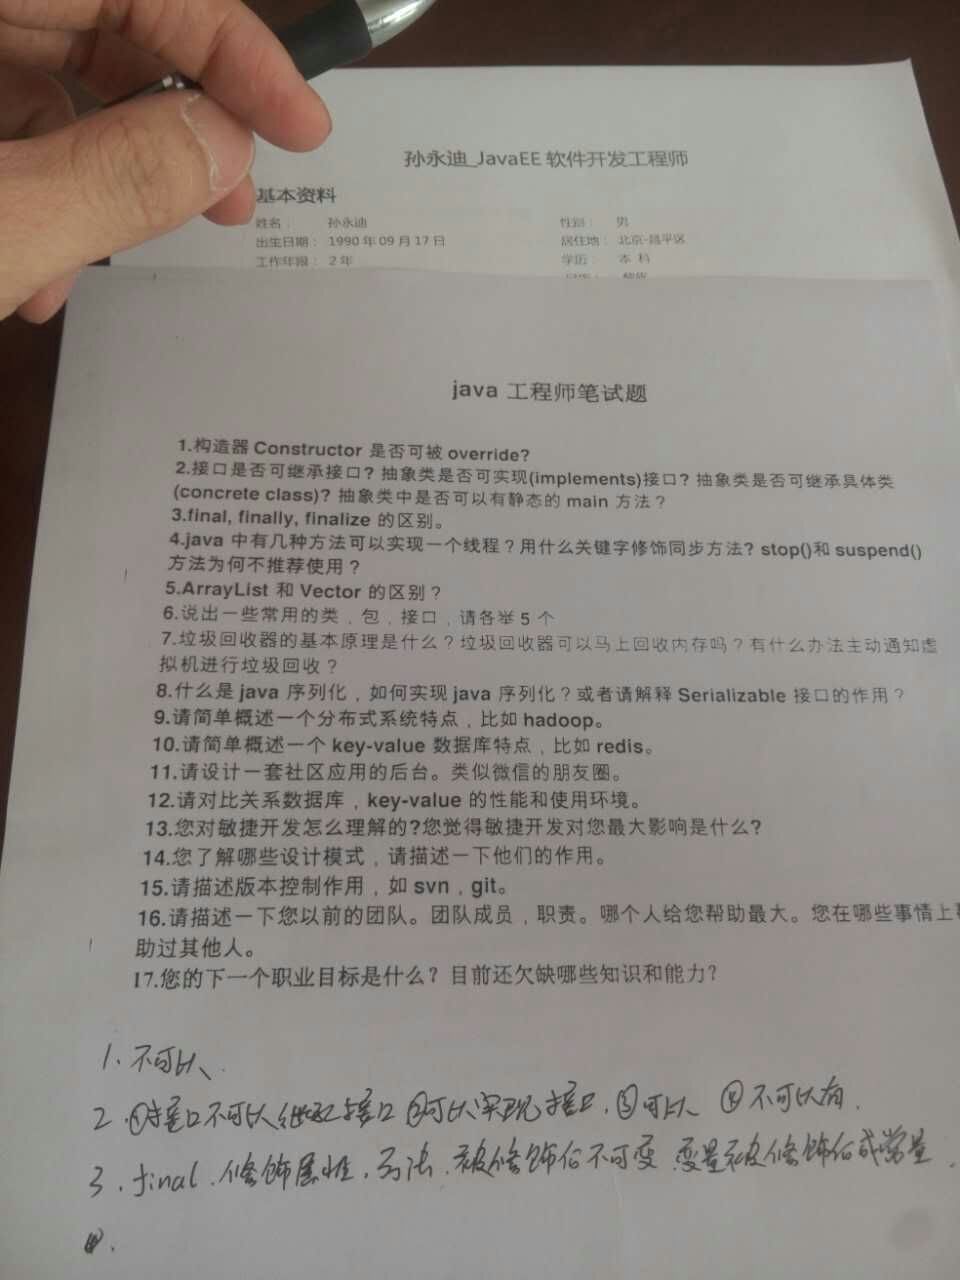 孙永迪_JavaEE 软件开发工程师
基本资料
姓名： 孙永迪 性别： 男
出生日期： 1990 年 09 月 17 日 居住地： 北京-昌平区
工作年限： 2 年 学历： 本 科
java 工程师笔试题
1.构造器 Constructor 是否可被 override?
2.接口是否可继承接口? 抽象类是否可实现(implements)接口? 抽象类是否可继承具体类
(concrete class)? 抽象类中是否可以有静态的 main 方法？
3.final, finally, finalize 的区别。
4.java 中有几种方法可以实现一个线程？用什么关键字修饰同步方法? stop()和 suspend()
方法为何不推荐使用？
5.ArrayList 和 Vector 的区别？
6.说出一些常用的类，包，接口，请各举 5 个
7.垃圾回收器的基本原理是什么？垃圾回收器可以马上回收内存吗？有什么办法主动通知虚
拟机进行垃圾回收？
8.什么是 java 序列化，如何实现 java 序列化？或者请解释 Serializable 接口的作用？
9.请简单概述一个分布式系统特点，比如 hadoop。
10.请简单概述一个 key-value 数据库特点，比如 redis。
11.请设计一套社区应用的后台。类似微信的朋友圈。
12.请对比关系数据库，key-value 的性能和使用环境。
13.您对敏捷开发怎么理解的?您觉得敏捷开发对您最大影响是什么?
14.您了解哪些设计模式，请描述一下他们的作用。
15.请描述版本控制作用，如 svn，git。
16.请描述一下您以前的团队。团队成员，职责。哪个人给您帮助最大。您在哪些事情上
助过其他人。
17.您的下一个职业目标是什么？目前还欠缺哪些知识和能力?
1、不可以、
2、①接口不可以继承接口 ②可以实现接口、③可以 ④不可以有.
3、final、修饰属性、方法、被修饰后不可变 变量被修饰后成常量、